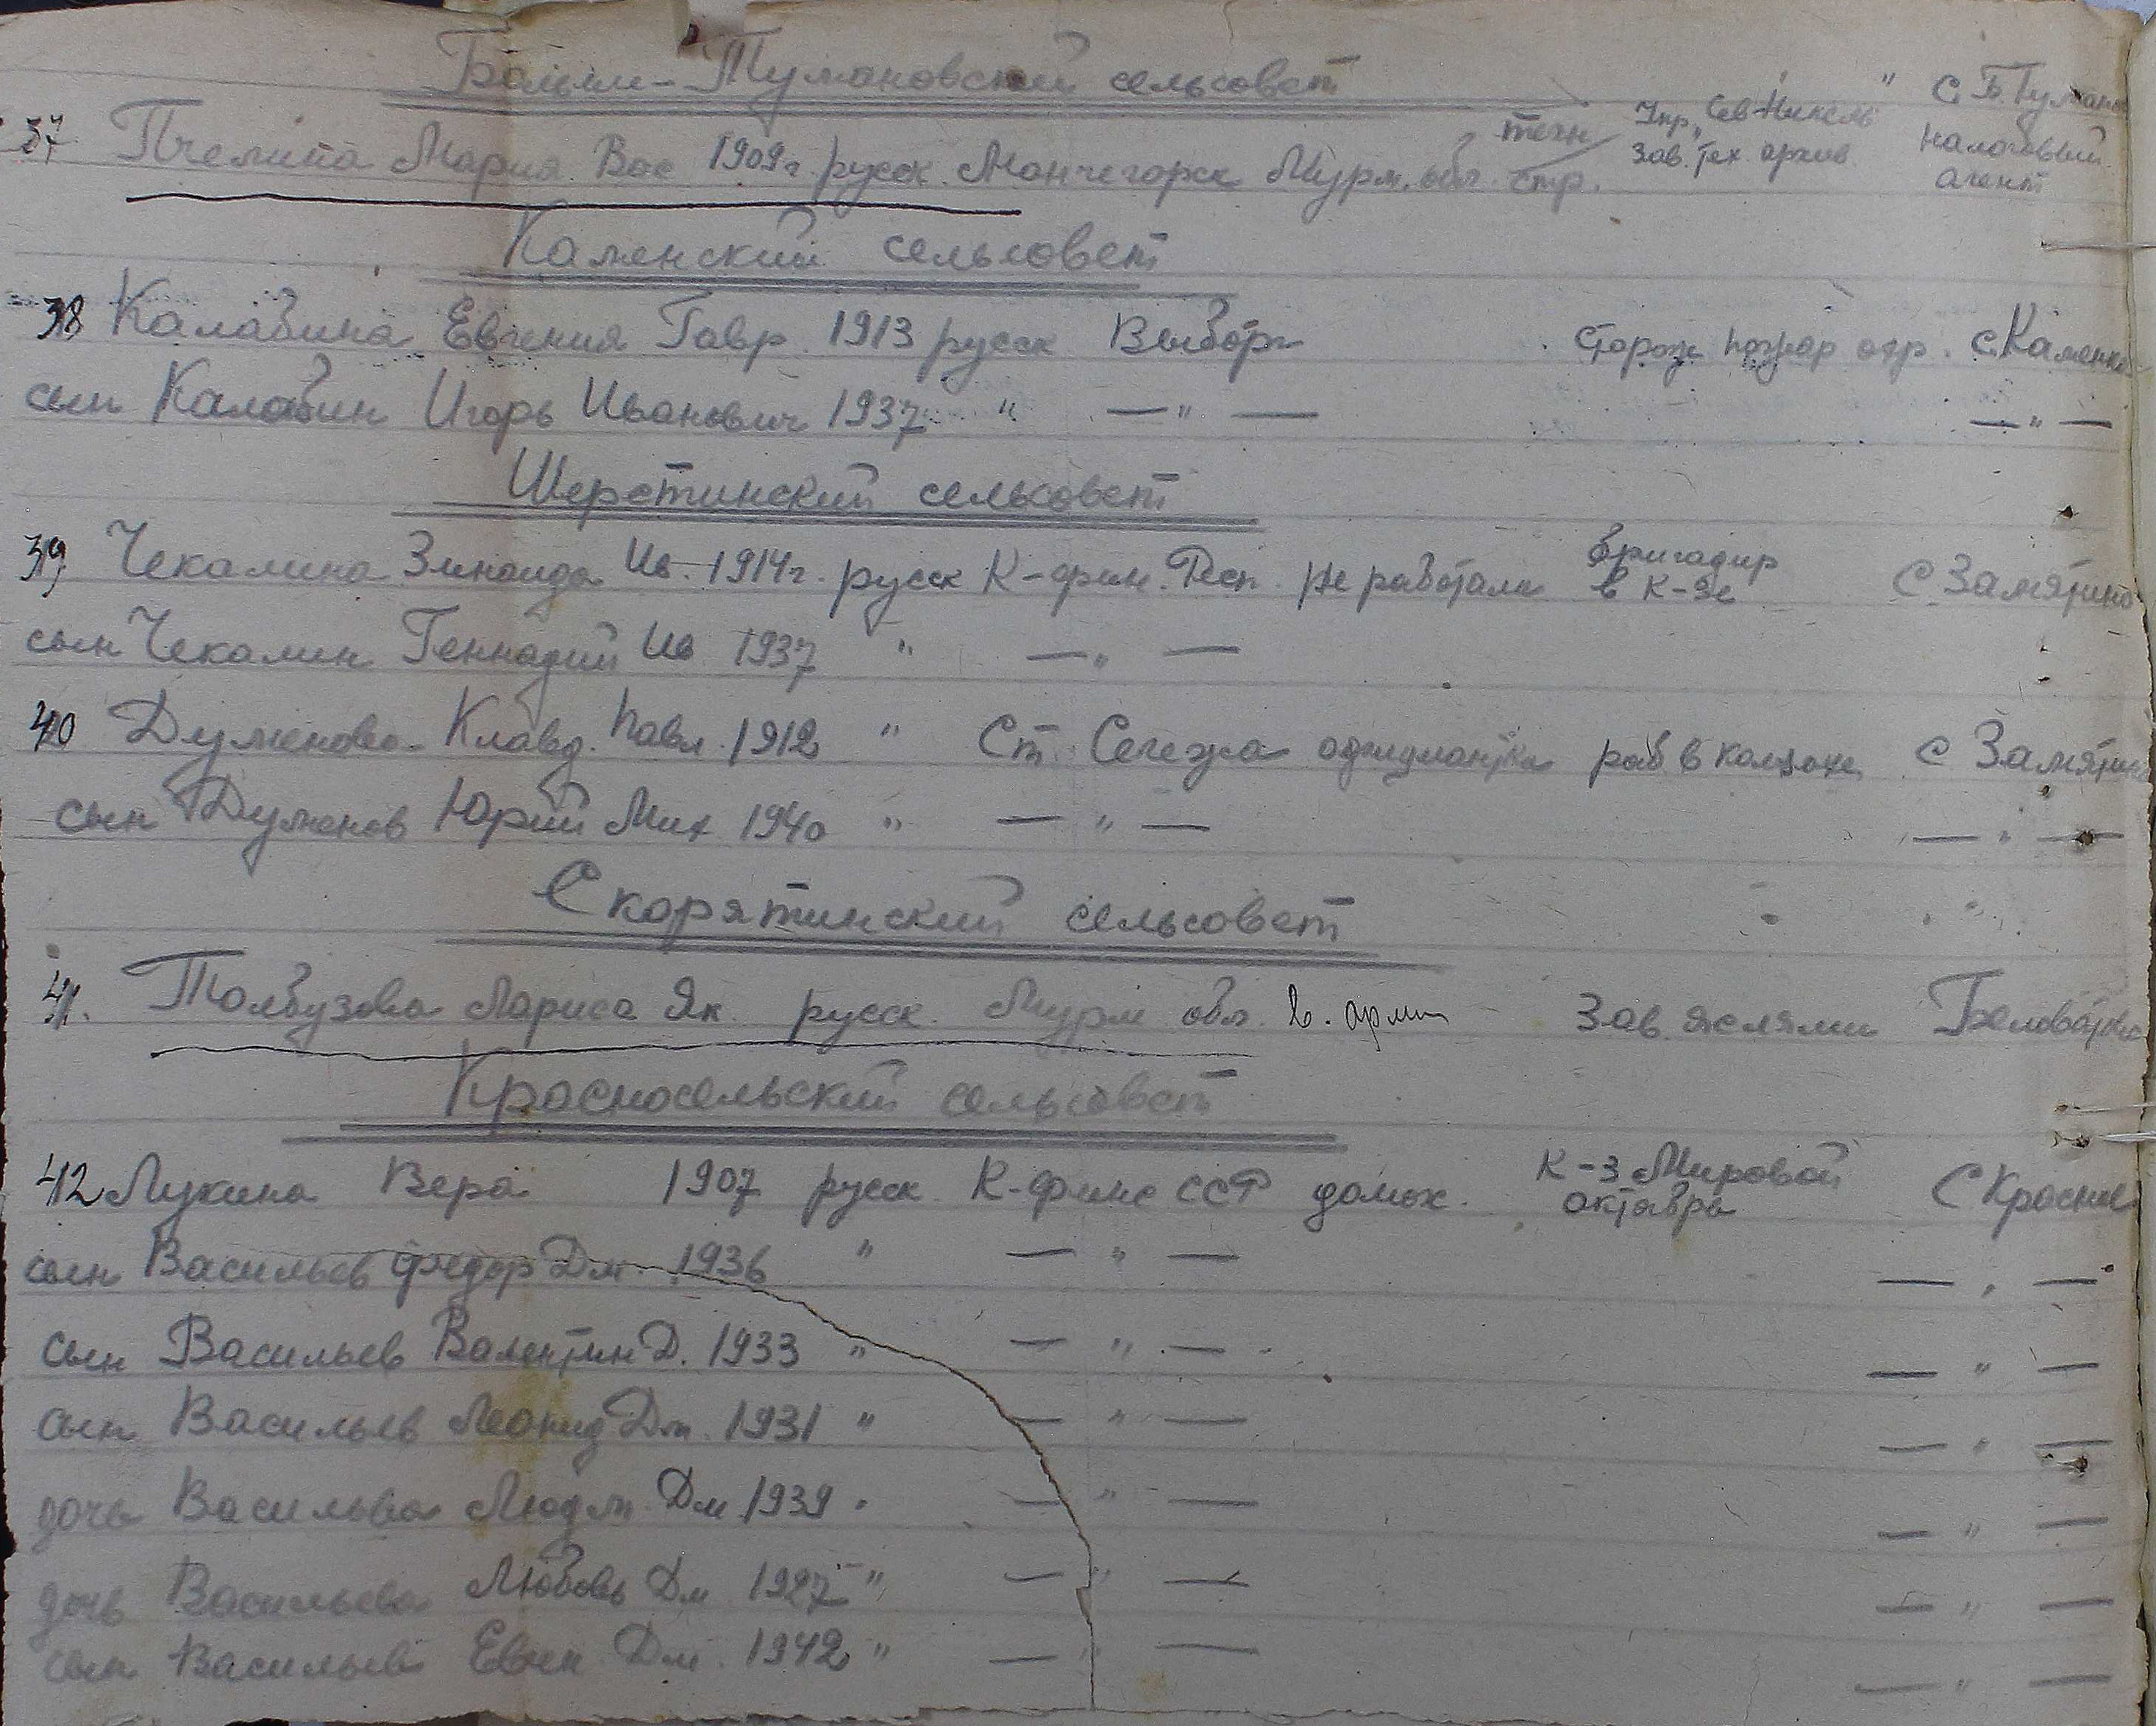 Больше-Тумановский сельсовет
37 Пчелина Мария Вас 1909г. русск. Мончегорск Мурм. обл. техн. стр. Упр. "Сев-Никель" Зав. Тех. архив. С. Б. Туман налоговый агент
Каменский сельсовет
38 Калабина Евгения Гавр. 1913 русск Выборг Сторож пожар отр. с. Каменка
сын Калабин Игорь Иванович 1937 " — " — — " —
Шерстинский сельсовет
39 Чекалина Зинаида Ив. 1914г. русск К-фин. Респ. Не работала бригадир в К-зе С Замятино
сын Чекалин Геннадий Ив 1937 " — " —
40 Думенова Клавд. Павл. 1912 " Ст. Сегежа раб в колхозе С Замятино
сын Думенов Юрий Мих 1940 " — " — — " —
Скорятинский сельсовет
41. Толбузова Лариса Як. русск. Мурм обл. в. арми Зав яслями Беловатка
Красносельский сельсовет
42 Лукина Вера 1907 русск. К-финс ССР домох. К-з Мировой октябрь С Красное
сын Васильев Федор Дм. 1936 " — " — — " —
сын Васильев Валентин Д. 1933 " — " — — " —
сын Васильев Леонид Дм. 1931 " — " — — " —
дочь Васильева Людм. Дм 1939 " — " — — " —
дочь Васильева Любовь Дм 1927 " — " — — " —
сын Васильев Евген Дм. 1942 " — " — — " —